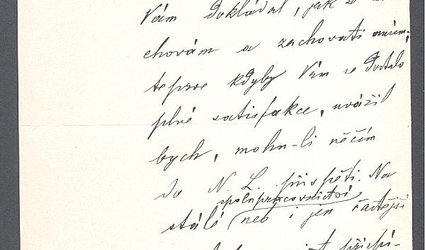 Vám dokládal, jak se
chovám a zachovati míním;
teprve kdyby Vám se dostalo
plné satisfakce, uvážil
bych, mohu-li něčím
do N. L. přispěti. Na
spolupracovnictví
stálé neb i jen častější